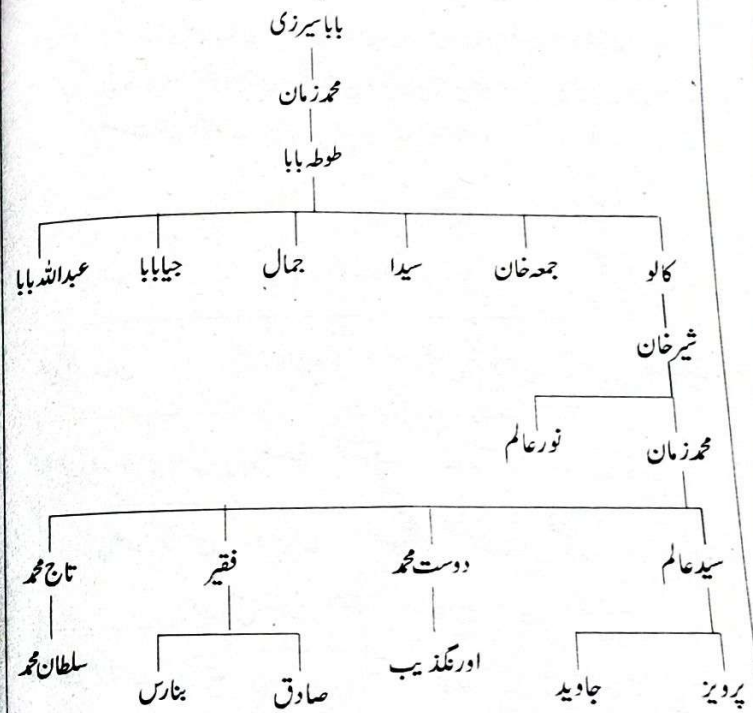 بابا سیرزی
محمد زمان
طوطہ بابا
کالو جمعہ خان سیدا جمال جیا بابا عبداللہ بابا
شیر خان
محمد زمان نور عالم
سید عالم دوست محمد فقیر تاج محمد
پرویز جاوید اورنگذیب صادق بنارس سلطان محمد